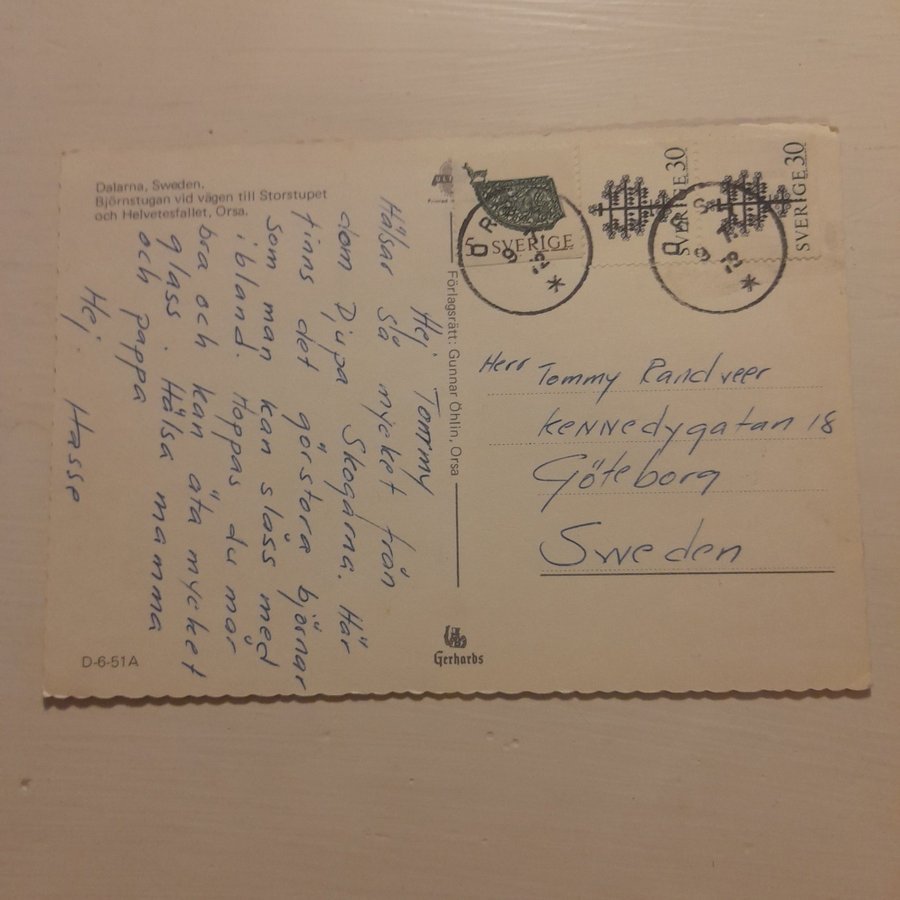 Dalarna, Sweden.
Björnstugan vid vägen till Storstupet
och Helvetesfallet, Orsa.
Hej. Tommy
Hälsar så mycket från
dom Djupa Skogarna. Här
finns det görstora björnar
som man kan slåss med
ibland. Hoppas du mår
bra och kan äta mycket
glass. Hälsa mamma
och pappa
Hej. Hasse
D-6-51A
Förlagsrätt: Gunnar Öhlin, Orsa
Gerhards
5 SVERIGE
SVERIGE 30
SVERIGE 30
Herr Tommy Randveer
Kennedygatan 18
Göteborg
Sweden